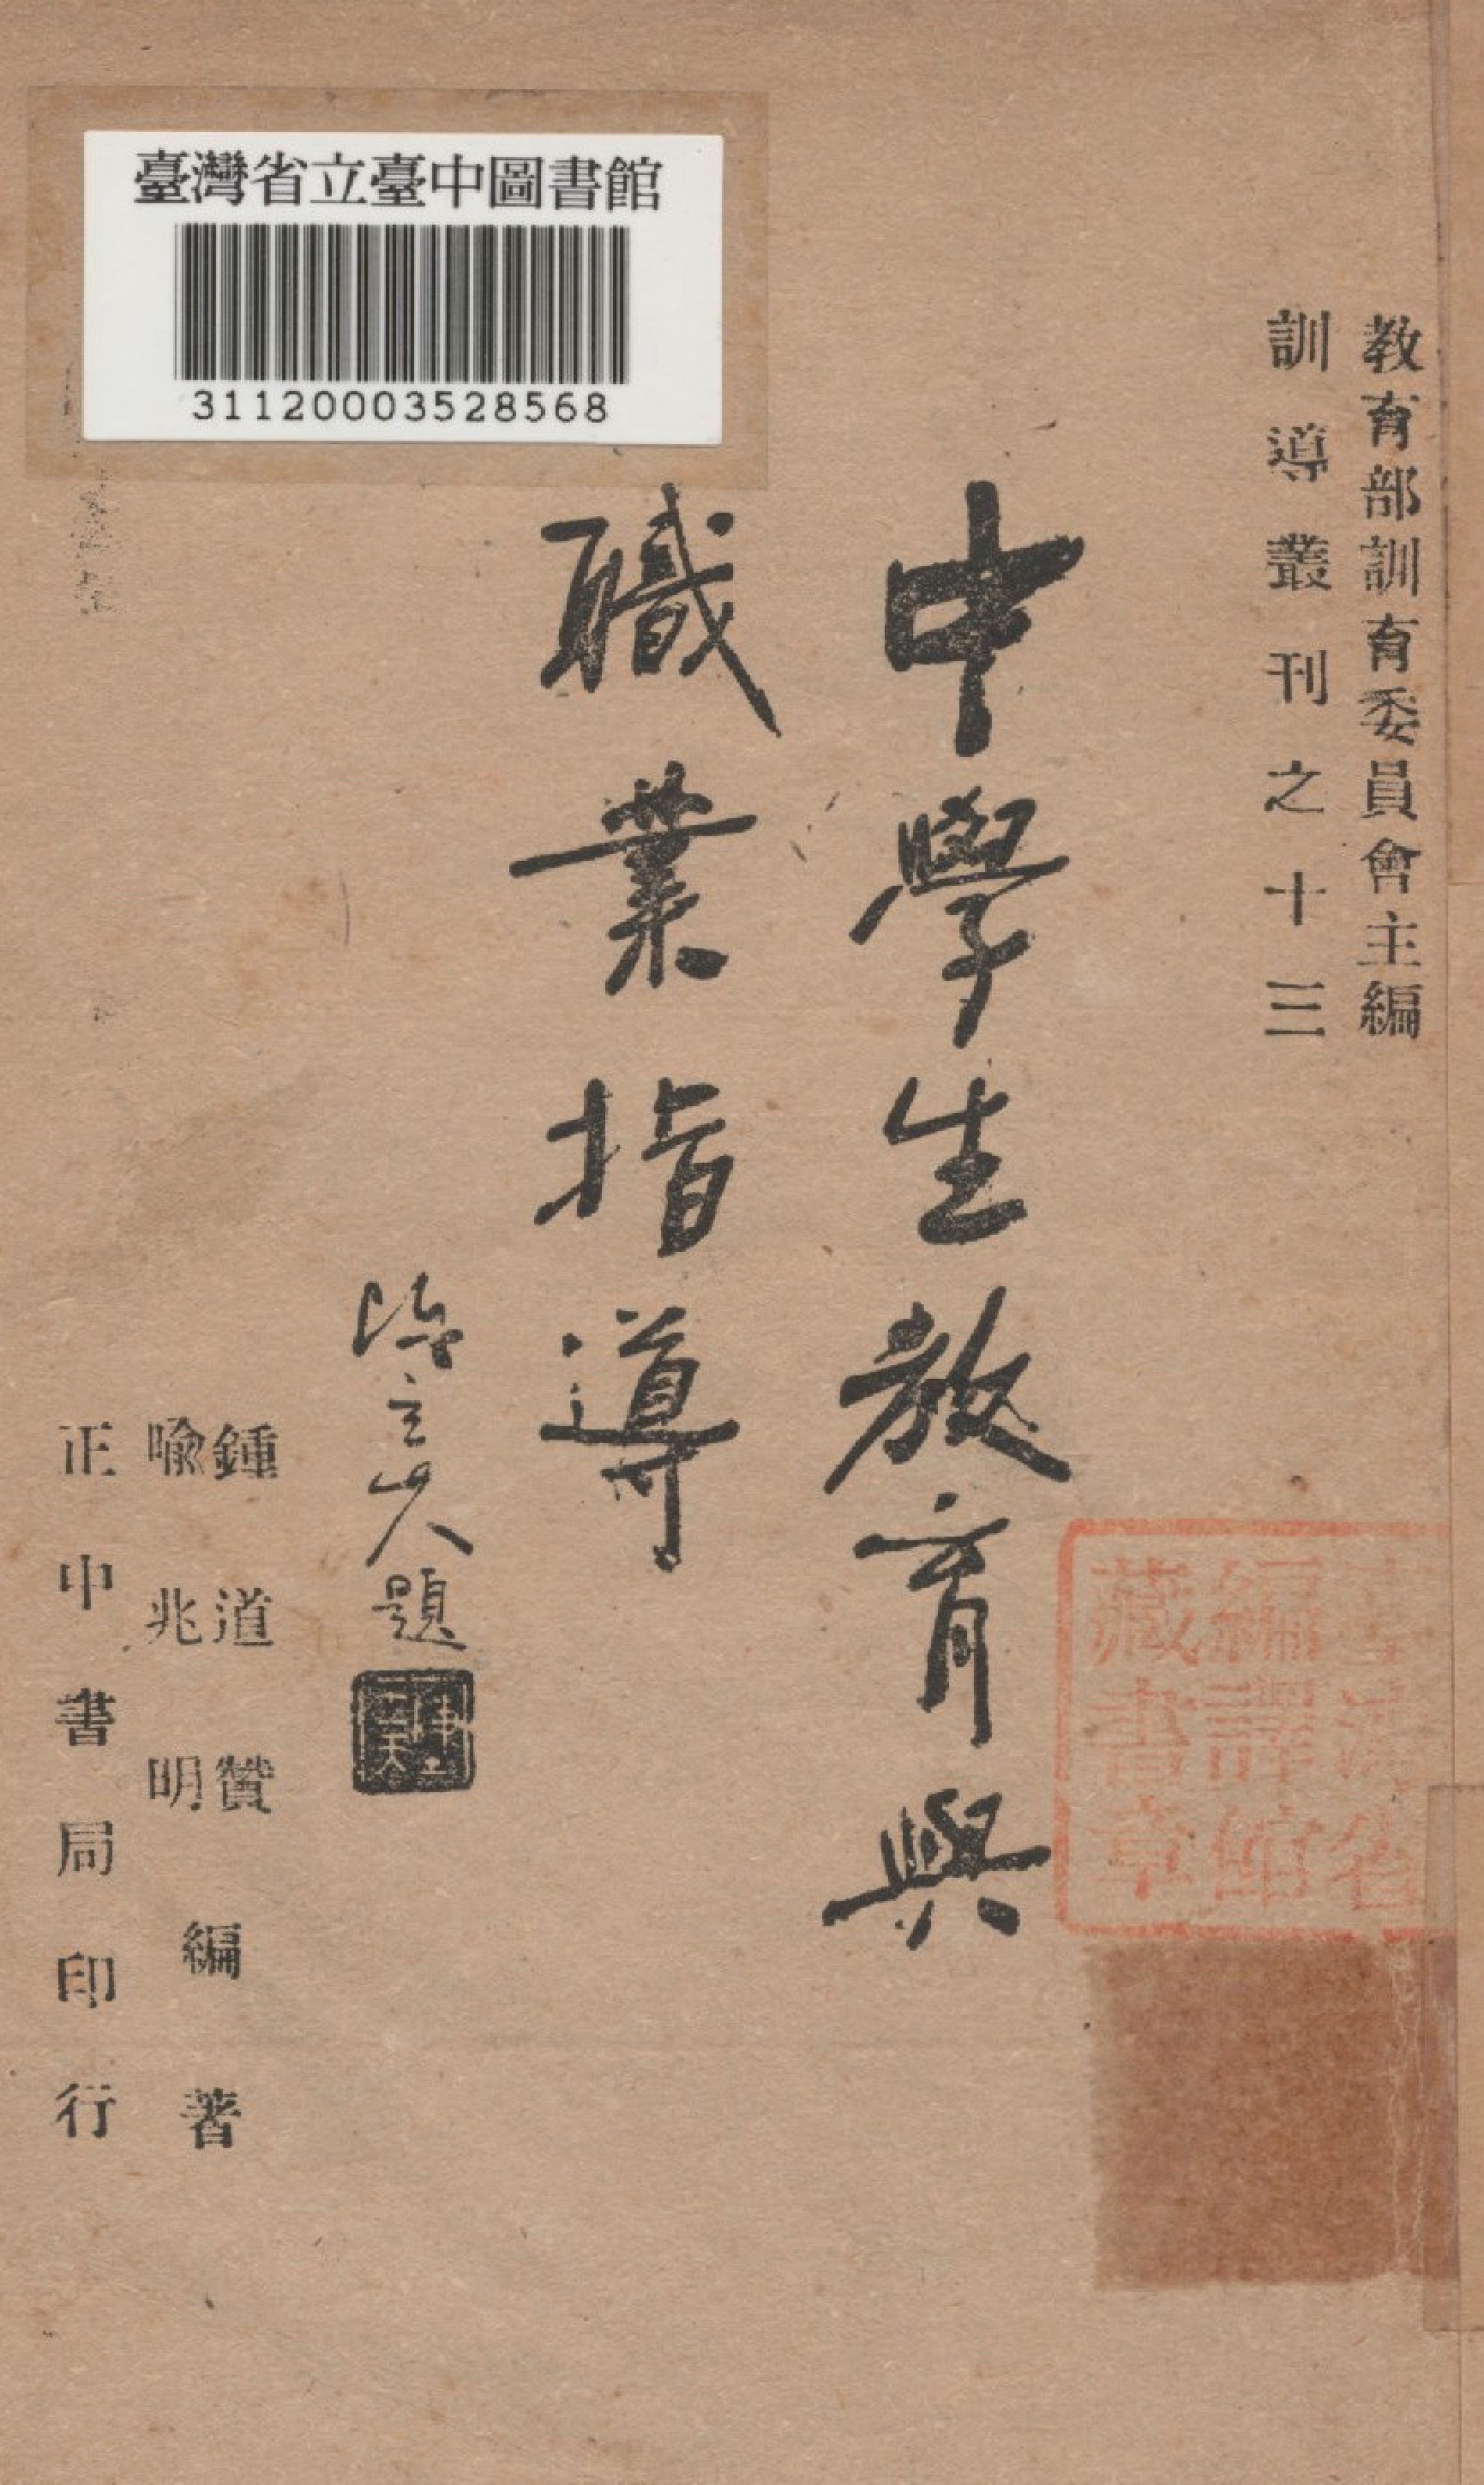 臺灣省立臺中圖書館
311200003528568
教育部訓育委員會主編
訓導叢刊之十三
中學生教育與
職業指導
陳立夫題
鍾道贊
喩兆明
編著
正中書局印行
臺灣省
編譯館
藏書章